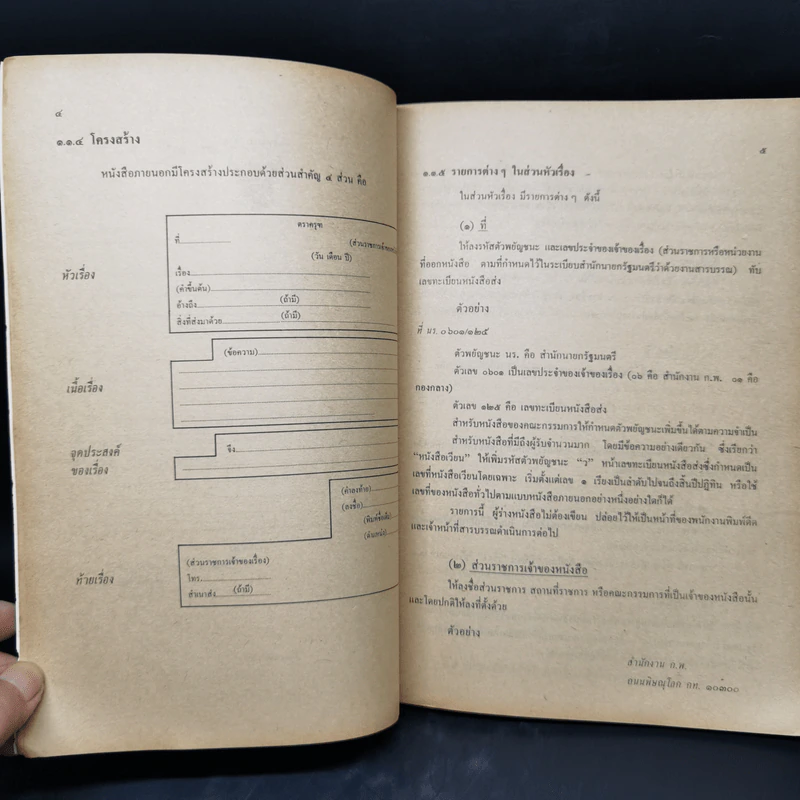 ๔
๑.๑.๔ โครงสร้าง
หนังสือภายนอกมีโครงสร้างประกอบด้วยส่วนสำคัญ ๔ ส่วน คือ
หัวเรื่อง
ตราครุฑ
ที่
(ส่วนราชการเจ้าของ
(วัน เดือน ปี)
เรื่อง
(คำขึ้นต้น)
อ้างถึง (ถ้ามี)
สิ่งที่ส่งมาด้วย (ถ้ามี)
เนื้อเรื่อง
(ข้อความ)
จุดประสงค์
ของเรื่อง
จึง
ท้ายเรื่อง
(คำลงท้าย)
(ลงชื่อ)
(พิมพ์ชื่อเต็ม)
(ตำแหน่ง)
(ส่วนราชการเจ้าของเรื่อง)
โทร.
สำเนาส่ง (ถ้ามี)
๕
๑.๑.๕ รายการต่าง ๆ ในส่วนหัวเรื่อง
ในส่วนหัวเรื่อง มีรายการต่าง ๆ ดังนี้
(๑) ที่
ให้ลงรหัสตัวพยัญชนะ และเลขประจำของเจ้าของเรื่อง (ส่วนราชการหรือหน่วยงาน
ที่ออกหนังสือ ตามที่กำหนดไว้ในระเบียบสำนักนายกรัฐมนตรีว่าด้วยงานสารบรรณ) ทับ
เลขทะเบียนหนังสือส่ง
ตัวอย่าง
ที่ นร. ๐๖๐๑/๑๒๕
ตัวพยัญชนะ นร. คือ สำนักนายกรัฐมนตรี
ตัวเลข ๐๖๐๑ เป็นเลขประจำของเจ้าของเรื่อง (๐๖ คือ สำนักงาน ก.พ. ๐๑ คือ
กองกลาง)
ตัวเลข ๑๒๕ คือ เลขทะเบียนหนังสือส่ง
สำหรับหนังสือของคณะกรรมการให้กำหนดตัวพยัญชนะเพิ่มขึ้นได้ตามความจำเป็น
สำหรับหนังสือที่มีถึงผู้รับจำนวนมาก โดยมีข้อความอย่างเดียวกัน ซึ่งเรียกว่า
“หนังสือเวียน” ให้เพิ่มรหัสตัวพยัญชนะ “ว” หน้าเลขทะเบียนหนังสือส่งซึ่งกำหนดเป็น
เลขที่หนังสือเวียนโดยเฉพาะ เริ่มตั้งแต่เลข ๑ เรียงเป็นลำดับไปจนถึงสิ้นปีปฏิทิน หรือใช้
เลขที่ของหนังสือทั่วไปตามแบบหนังสือภายนอกอย่างหนึ่งอย่างใดก็ได้
รายการนี้ ผู้ร่างหนังสือไม่ต้องเขียน ปล่อยไว้ให้เป็นหน้าที่ของพนักงานพิมพ์ดีด
และเจ้าหน้าที่สารบรรณดำเนินการต่อไป
(๒) ส่วนราชการเจ้าของหนังสือ
ให้ลงชื่อส่วนราชการ สถานที่ราชการ หรือคณะกรรมการที่เป็นเจ้าของหนังสือนั้น
และโดยปกติให้ลงที่ตั้งด้วย
ตัวอย่าง
สำนักงาน ก.พ.
ถนนพิษณุโลก กท. ๑๐๓๐๐